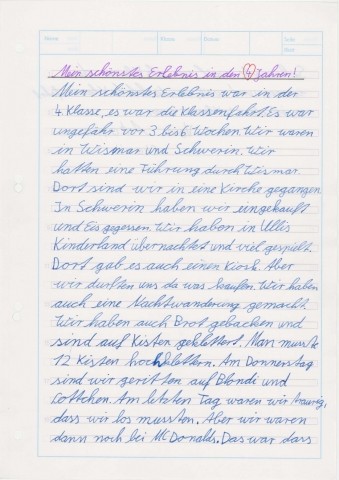 Mein schönstes Erlebnis in den 4 Jahren!
Mein schönstes Erlebnis war in der
4. Klasse, es war die Klassenfahrt. Es war
ungefähr vor 3 bis 6 Wochen. Wir waren
in Wismar und Schwerin. Wir
hatten eine Führung durch Wismar.
Dort sind wir in eine Kirche gegangen.
In Schwerin haben wir eingekauft
und Eis gegessen. Wir haben in Ullis
Kinderland übernachtet und viel gespielt.
Dort gab es auch einen Kiosk. Aber
wir durften uns da was kaufen. Wir haben
auch eine Nachtwanderung gemacht.
Wir haben auch Brot gebacken und
sind auf Kisten geklettert. Man musste
12 Kisten hochklettern. Am Donnerstag
sind wir geritten auf Blondi und
Lottchen. Am letzten Tag waren wir traurig,
dass wir los mussten. Aber wir waren
dann noch bei Mc Donalds. Das war dass